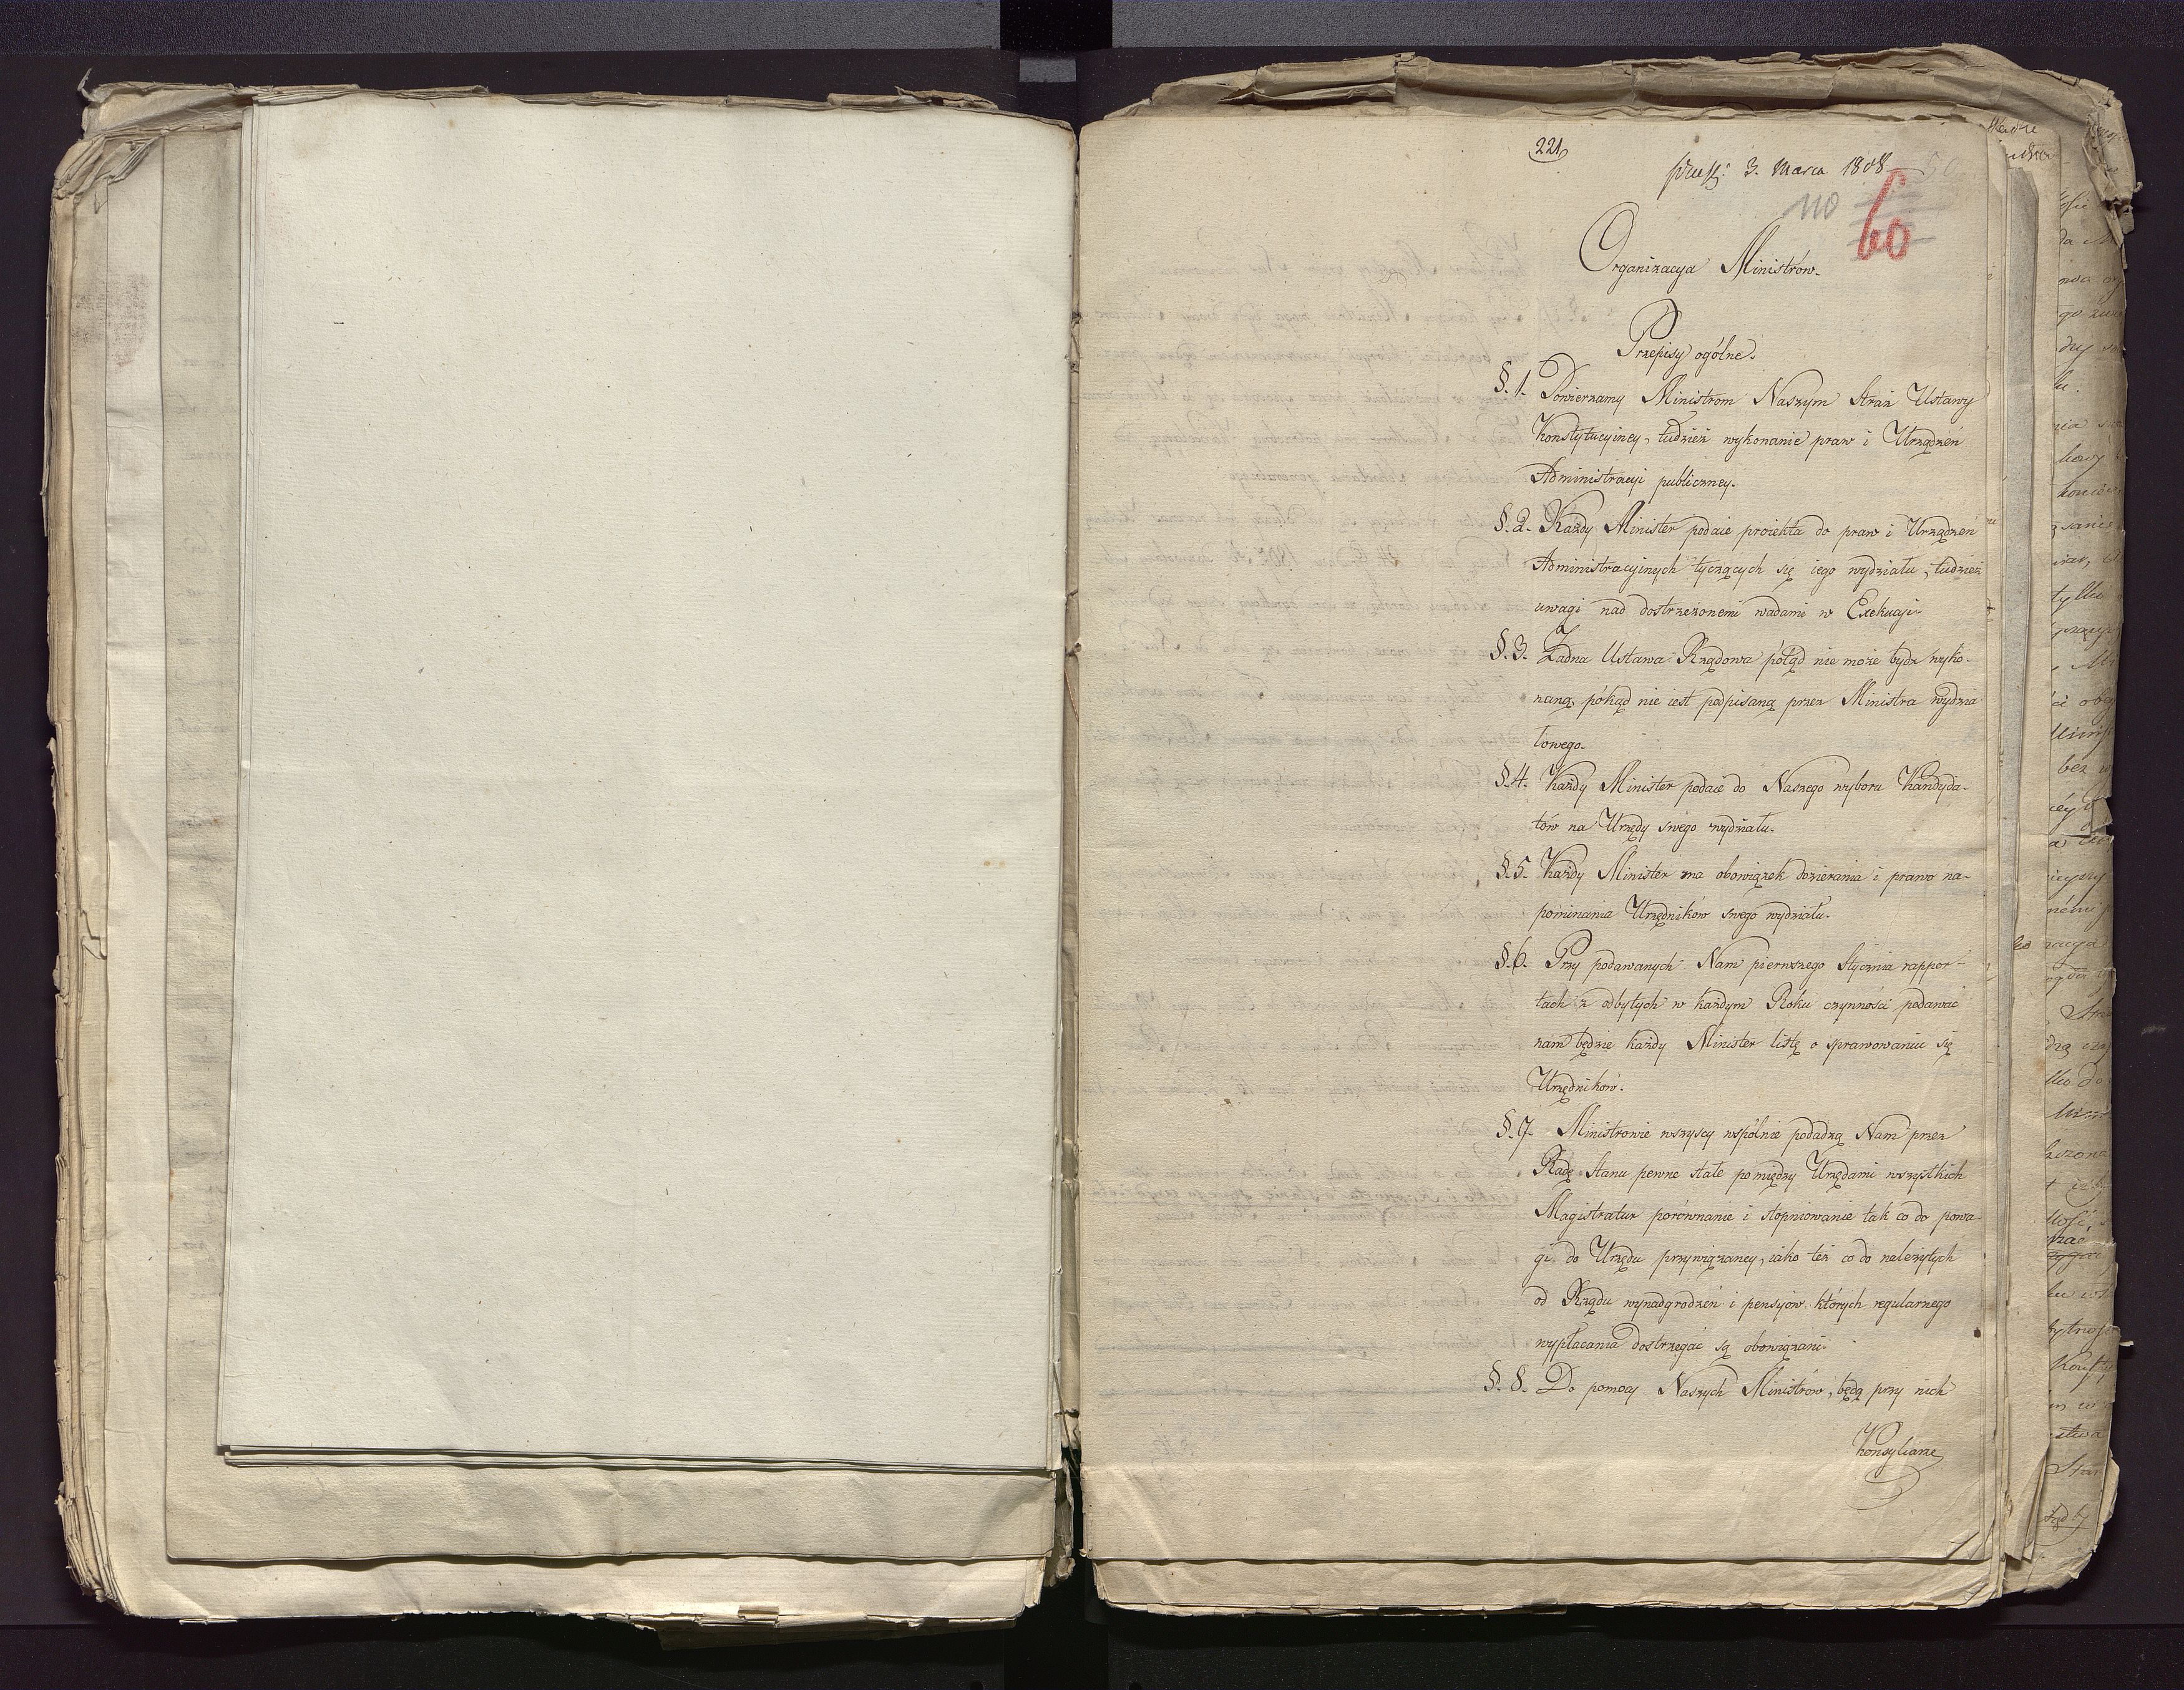 221
3. Marca 1808
110
60
Organizacya Ministrów.
Przepisy ogólne.
§. 1. Powierzamy Ministrom Naszym Straż Ustawy
Konstytucyiney, tudzież wykonanie praw i Urządzeń
Administracyi publiczney.
§. 2. Każdy Minister podaie proiekta do praw i Urządzeń
Administracyinych tyczących się iego wydziału, tudzież
uwagi nad dostrzeżonemi wadami w Exekucyi.
§. 3. Żadna Ustawa Rządowa potąd nie może bydz wyko-
naną, pókąd nie iest podpisaną przez Ministra wydzia
łowego.
§. 4. Każdy Minister podaie do Naszego wyboru Kandyda-
tów na Urzędy swego wydziału.
§. 5. Każdy Minister ma obowiązek dozierania i prawo na-
pominania Urzędników swego wydziału.
§. 6. Przy podawanych Nam pierwszego Stycznia rappor-
tach z odbytych w każdym Roku czynności podawać
nam będzie każdy Minister listę o sprawowaniu się
Urzędników.
§. 7. Ministrowie wszyscy wspólnie podadzą Nam przez
Radę Stanu pewne stałe pomiędzy Urzędami wszystkich
Magistratur porównanie i stopniowanie tak co do powa-
gi do Urzędu przywiązaney, iako też co do należytych
od Rządu wynadgrodzeń i pensyów których regularnego
wypłacania dostrzegać są obowiązani.
§. 8. Do pomocy Naszych Ministrów, będą przy nich
Konsyliarze